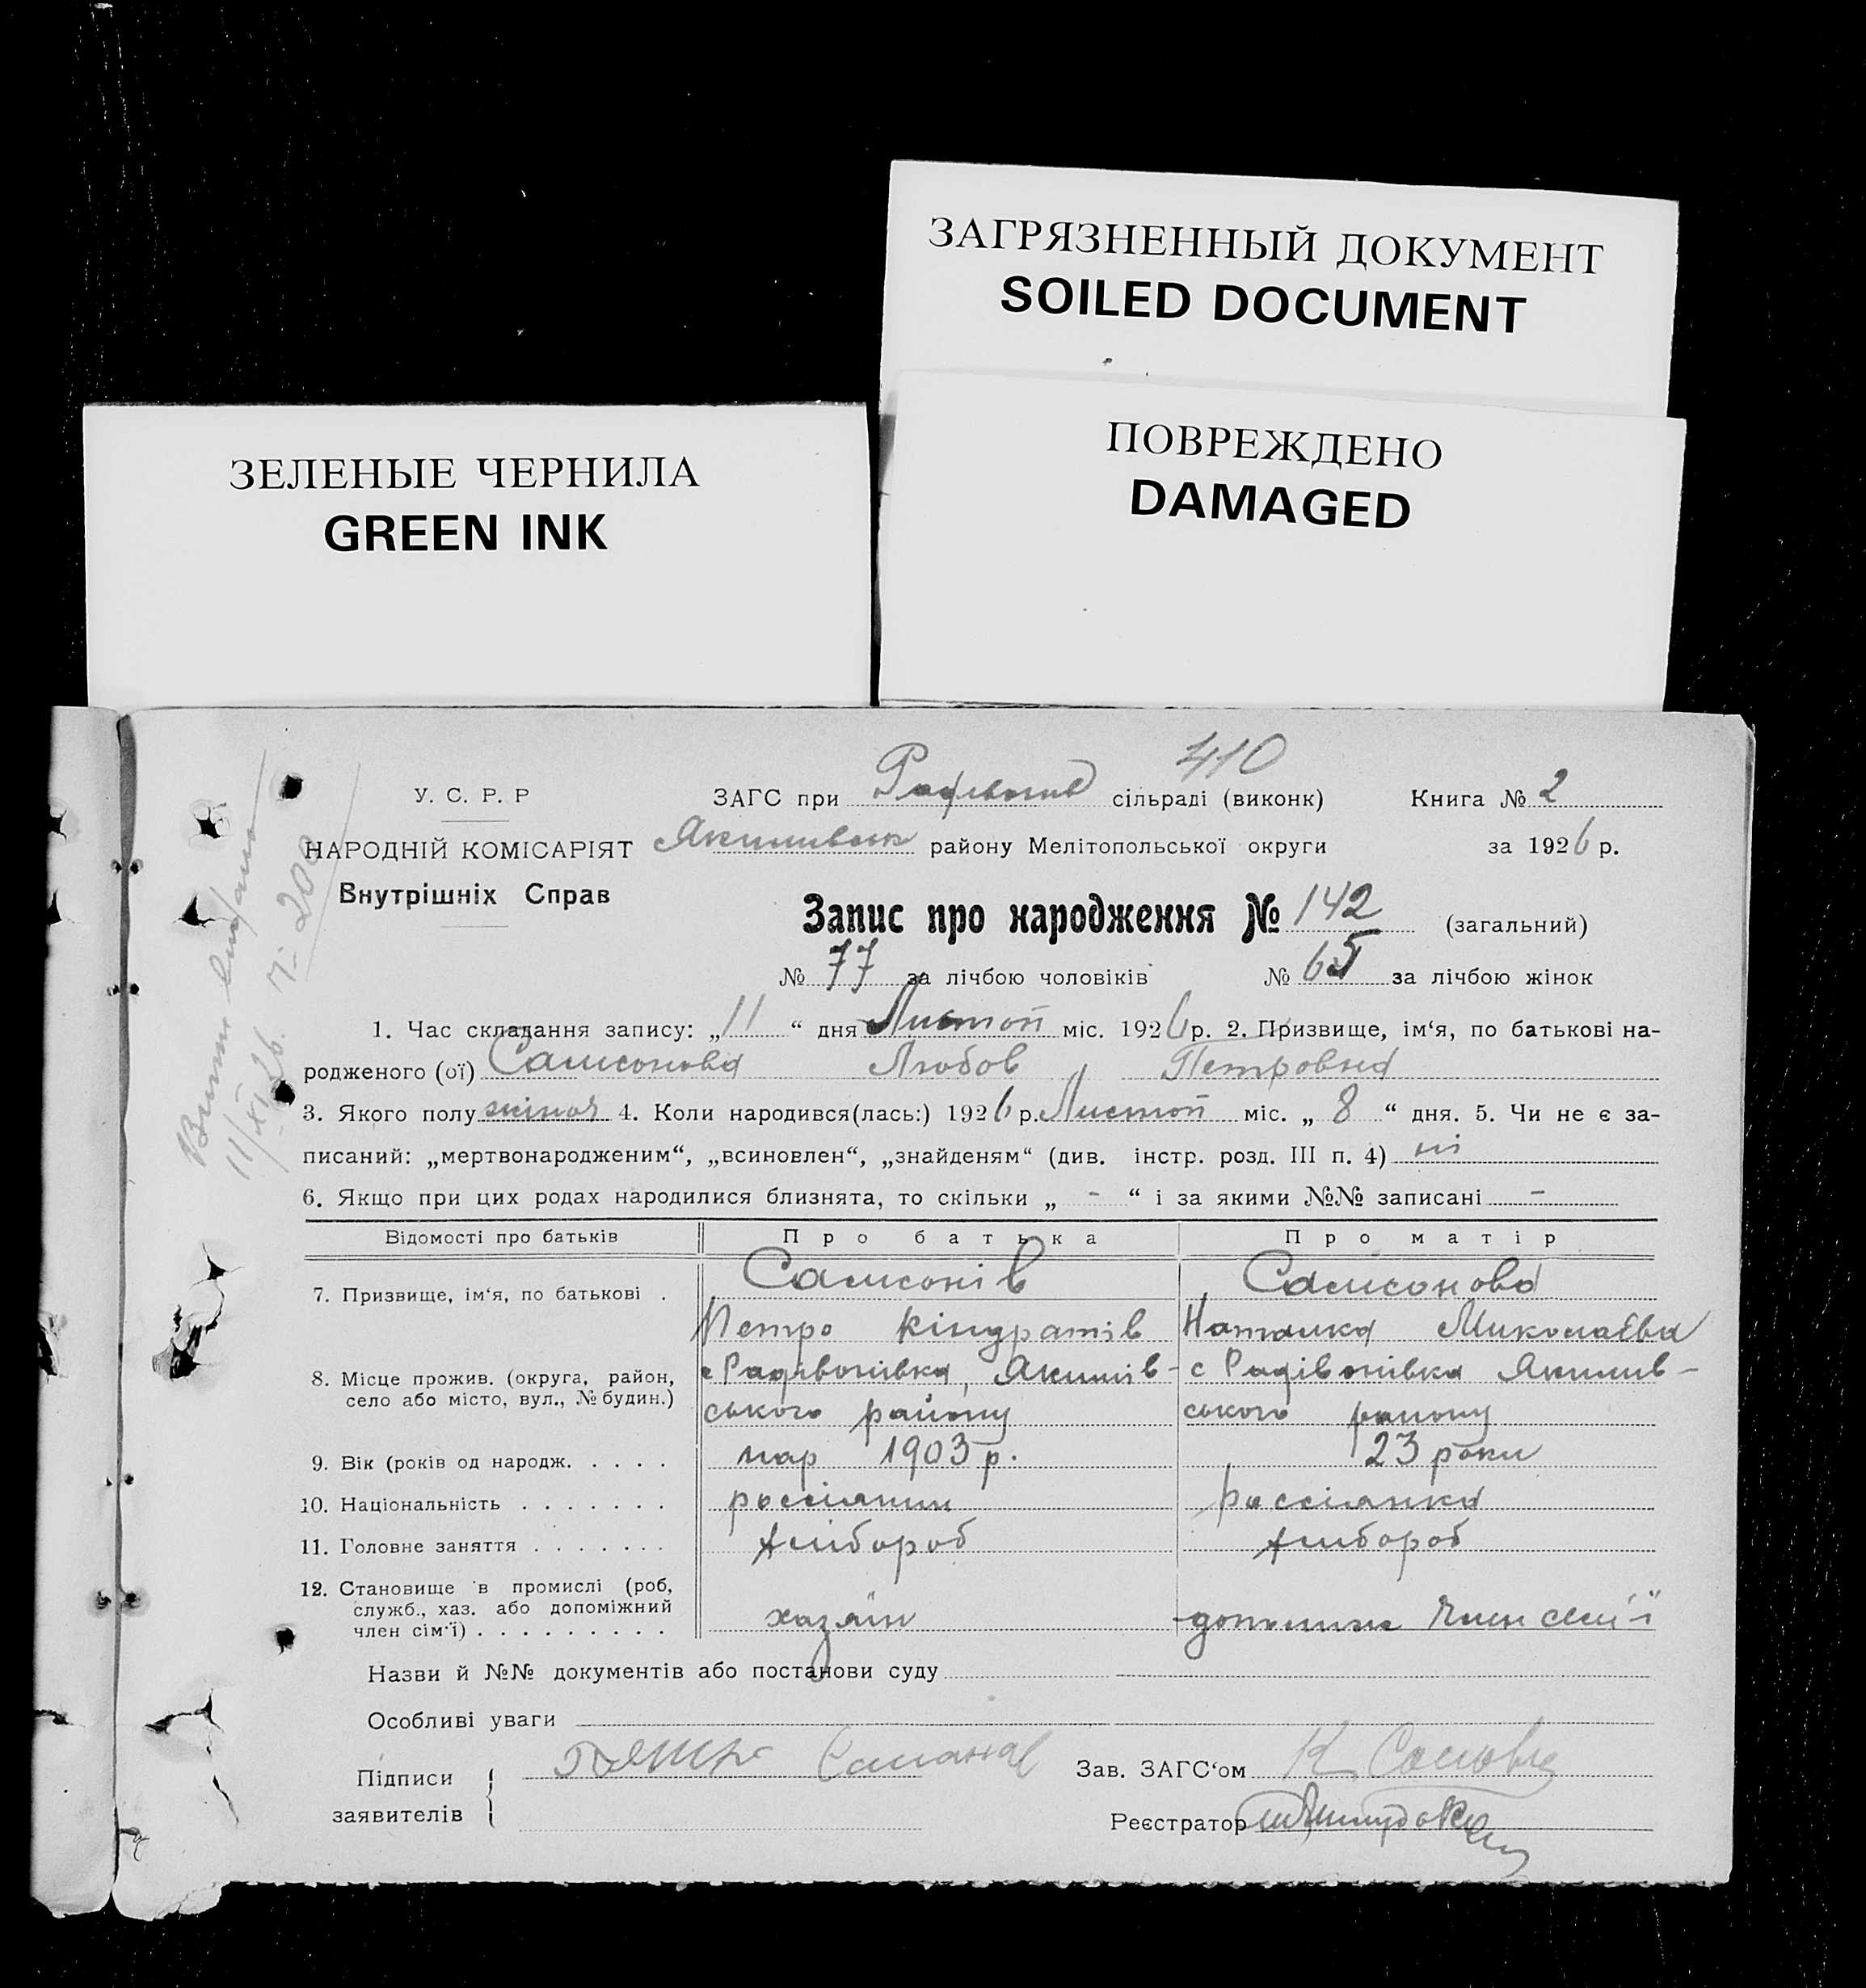 ЗАГРЯЗНЕННЫЙ ДОКУМЕНТ
SOILED DOCUMENT
ЗЕЛЕНЫЕ ЧЕРНИЛА
GREEN INK
ПОВРЕЖДЕНО
DAMAGED
410
У. С. Р. Р
ЗАГС при Радівонів сільраді (виконк)
Книга № 2
НАРОДНІЙ КОМІСАРІЯТ
Якимивськ району Мелітопольської округи
за 1926 р.
Внутрішніх Справ
Запис про народження № 142 (загальний)
№ 77 за лічбою чоловіків № 65 за лічбою жінок
1. Час складання запису: „11“ дня Листоп міс. 1926 р. 2. Призвище, ім‘я, по батькові на-
родженого (ої) Самсонова Любов Петровна
3. Якого полу жіноч 4. Коли народився(лась:) 1926 р. Листоп міс. „8“ дня. 5. Чи не є за-
писаний: „мертвонародженим“, „всиновлен“, „знайденям“ (див. інстр. розд. III п. 4) ні
6. Якщо при цих родах народилися близнята, то скільки „ - “ і за якими №№ записані -
Відомості про батьків
Про батька
Про матір
7. Призвище, ім‘я, по батькові .
Самсонів
Самсонова
Петро Кіндратів
Наталка Миколаєвна
8. Місце прожив. (округа, район,
село або місто, вул., № будин.)
с Радівонівка, Якимів-
с Радівонівка Якимив-
ського району
ського району
9. Вік (років од народж. . . . .
нар 1903 р.
23 роки
10. Національність . . . . . . .
россіянин
россіянка
11. Головне заняття . . . . . . .
хлібороб
хлибороб
12. Становище в промислі (роб,
служб., хаз. або допоміжний
член сім‘ї) . . . . . . . . .
хазяїн
допомиж член семї
Назви й №№ документів або постанови суду
Особливі уваги
Підписи
заявителів
Зав. ЗАГС‘ом
Реєстратор
11/XI 26.